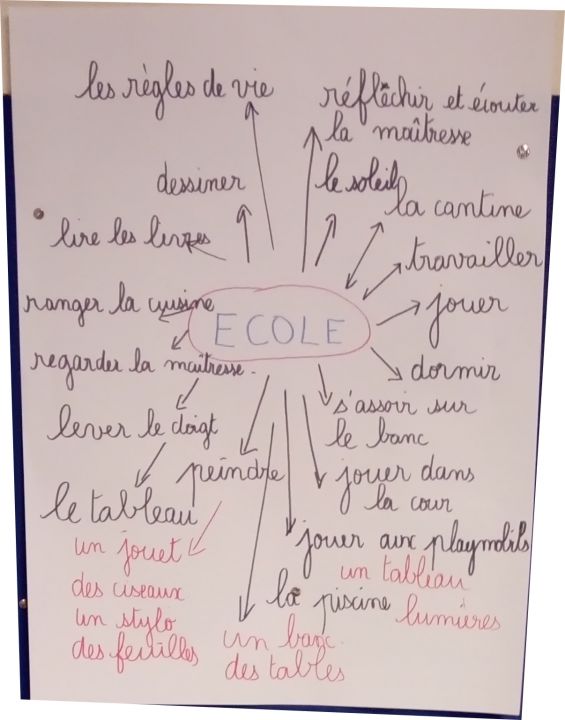 les règles de vie
réflêchir et écouter
la maîtresse
dessiner
le soleil
la cantine
lire les livres
travailler
ranger la cuisine
ECOLE
jouer
regarder la maîtresse.
dormir
lever le doigt
s'assoir sur
le banc
peindre
jouer dans
la cour
le tableau
jouer aux playmobils
un jouet
des ciseaux
un stylo
des feuilles
la piscine
un tableau
lumières
un banc
des tables